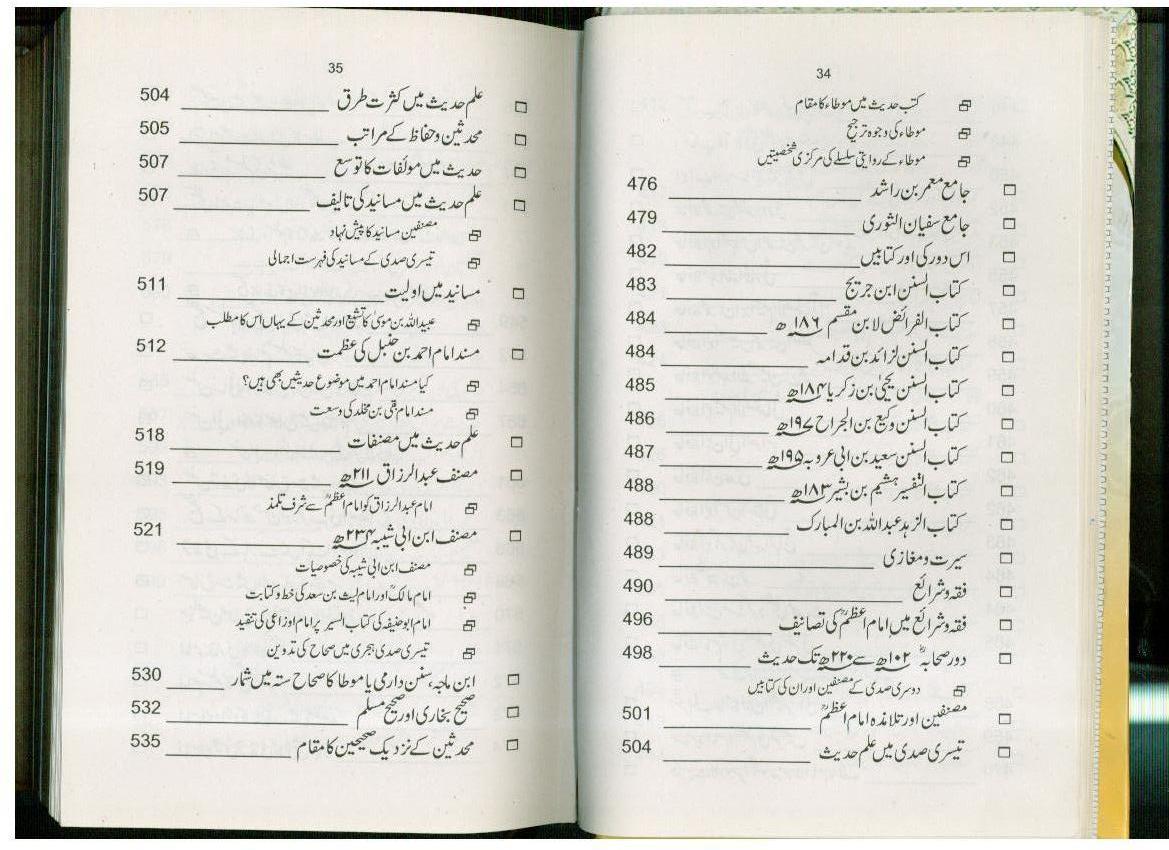 34
کتب حدیث میں موطاء کا مقام
موطاء کی وجوہ ترجیح
موطاء کے روایتی سلسلے کی مرکزی شخصیتیں
جامع معمر بن راشد 476
جامع سفیان الثوری 479
اس دور کی اور کتابیں 482
کتاب السنن ابن جریج 483
کتاب الفرائض لابن مقسم ۱۸۶ھ 484
کتاب السنن لزائد بن قدامہ 484
کتاب السنن یحییٰ بن زکریا ۱۸۴ھ 485
کتاب السنن وکیع بن الجراح ۱۹۷ھ 486
کتاب السنن سعید بن ابی عروبہ ۱۹۵ھ 487
کتاب التفسیر ہشیم بن بشیر ۱۸۳ھ 488
کتاب الزہد عبداللہ بن المبارک 488
سیرت و مغازی 489
فقہ و شرائع 490
فقہ و شرائع میں امام اعظمؒ کی تصانیف 496
دور صحابہؓ ۱۰۲ھ سے ۲۲۰ھ تک حدیث 498
دوسری صدی کے مصنفین اور ان کی کتابیں
مصنفین اور تلامذہ امام اعظمؒ 501
تیسری صدی میں علم حدیث 504
35
علم حدیث میں کثرت طرق 504
محدثین و حفاظ کے مراتب 505
حدیث میں مؤلفات کا توسع 507
علم حدیث میں مسانید کی تالیف 507
مصنفین مسانید کا پیش نہاد
تیسری صدی کے مسانید کی فہرست اجمالی
مسانید میں اولیت 511
عبیداللہ بن موسیٰ کا تشیع اور محدثین کے یہاں اس کا مطلب
مسند امام احمد بن حنبل کی عظمت 512
کیا مسند امام احمد میں موضوع حدیثیں بھی ہیں؟
مسند امام بقی بن مخلد کی وسعت
علم حدیث میں مصنفات 518
مصنف عبدالرزاق ۲۱۱ھ 519
امام عبدالرزاق کو امام اعظمؒ سے شرف تلمذ
مصنف ابن ابی شیبہ ۲۳۴ھ 521
مصنف ابن ابی شیبہ کی خصوصیات
امام مالکؒ اور امام لیث بن سعد کی خط و کتابت
امام ابوحنیفہ کی کتاب السیر پر امام اوزاعی کی تنقید
تیسری صدی ہجری میں صحاح کی تدوین
ابن ماجہ، سنن دارمی یا موطا کا صحاح ستہ میں شمار 530
صحیح بخاری اور صحیح مسلم 532
محدثین کے نزدیک صحیحین کا مقام 535